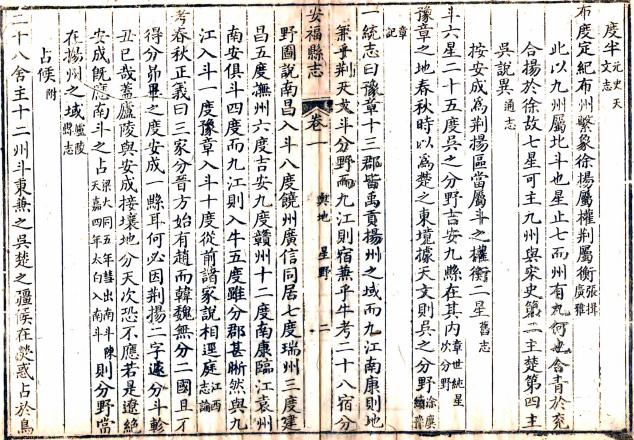 度半元史天文志
布度定紀布州繫象徐揚屬權荆屬衡張揖廣雅
此以九州屬北斗也星止七而州有九何也合青於兖
合揚於徐故七星可主九州與宋史第二主楚第四主
吳說異通志
按安成爲荆揚區當屬斗之權衡二星舊志
斗六星二十五度吳之分野吉安九縣在其内章世純星次分野
豫章之地春秋時以爲楚之東境據天文則吳之分野徐廙續豫章記
一統志曰豫章十三郡皆禹貢揚州之域而九江南康則地
兼乎荆天文斗分野而九江則宿兼乎牛考二十八宿分
安福縣志 卷一 輿地 星野 二
野圖說南昌入斗八度饒州廣信同居七度瑞州三度建
昌五度撫州六度吉安九度贛州十二度南康臨江袁州
南安俱斗四度而九江則入牛五度雖分郡甚晰然與九
江入斗一度豫章入斗十度從前諸家說相逕庭江西志論
考春秋正義曰三家分晉方始有趙而韓魏無分二國且不
得分昴畢之度安成一縣耳何必因荆揚二字遽分斗軫
丑巳哉蓋廬陵與安成接壤地分天次恐不應若是遼絶
安成旣應南斗之占梁大同五年彗出南斗陳天嘉四年太白入南斗則分野當
在揚州之域廬陵縣志
占候附
二十八舍主十二州斗秉兼之吳楚之疆候在熒惑占於鳥